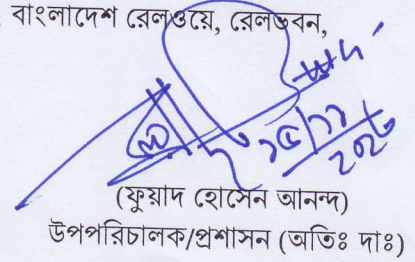 বাংলাদেশ রেলওয়ে, রেলভবন,
(ফুয়াদ হোসেন আনন্দ)
উপপরিচালক/প্রশাসন (অতিঃ দাঃ)